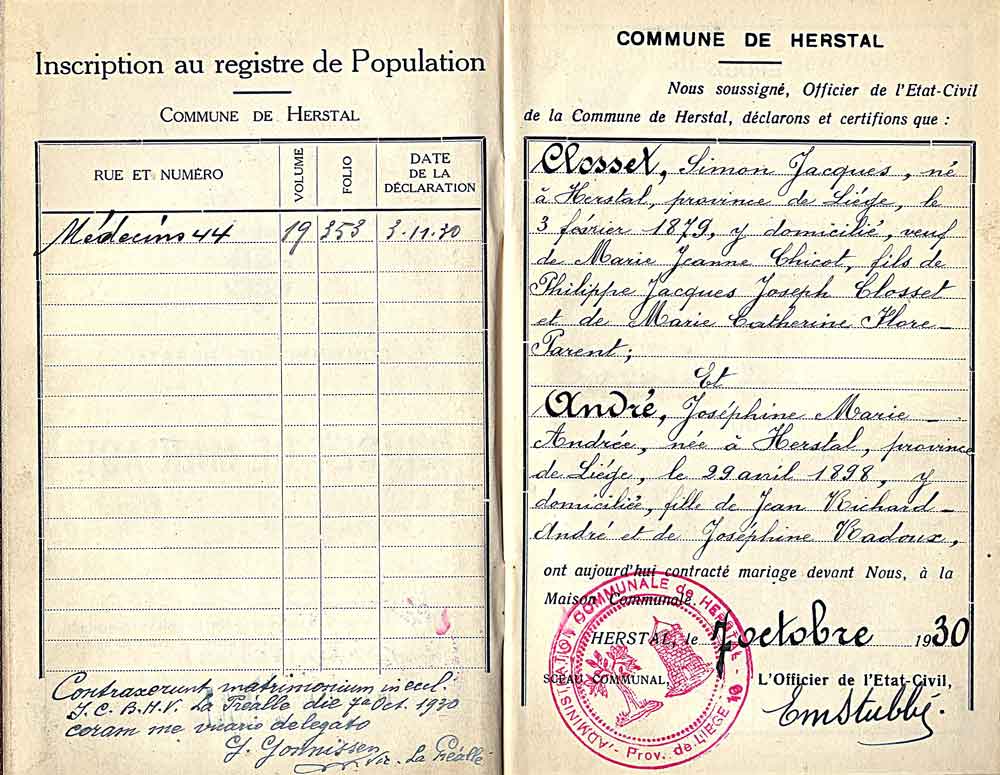 Inscription au registre de Population
COMMUNE DE HERSTAL
RUE ET NUMÉRO
VOLUME
FOLIO
DATE DE LA DÉCLARATION
Médecins 44 19 353 3.11.30
Contraxerunt matrimonium in eccl.
J. C. B. M. V. La Préalle die 7a Oct. 1930
coram me vicario delegato
G. Gonnissen
Vic. La Préalle
COMMUNE DE HERSTAL
Nous soussigné, Officier de l'Etat-Civil
de la Commune de Herstal, déclarons et certifions que :
Closset, Simon Jacques, né
à Herstal, province de Liége, le
3 février 1879, y domicilié, veuf
de Marie Jeanne Chicot, fils de
Philippe Jacques Joseph Closset
et de Marie Catherine Flore
Parent;
Et
André, Joséphine Marie
Andrée, née à Herstal, province
de Liége, le 29 avril 1898, y
domiciliée, fille de Jean Richard
André et de Joséphine Radoux,
ont aujourd'hui contracté mariage devant Nous, à la
Maison Communale.
HERSTAL, le 7 octobre 1930
SCEAU COMMUNAL,
L'Officier de l'Etat-Civil,
EmStubbé.
ADMINISTRATION COMMUNALE de HERSTAL - 10 -
Prov. de LIEGE